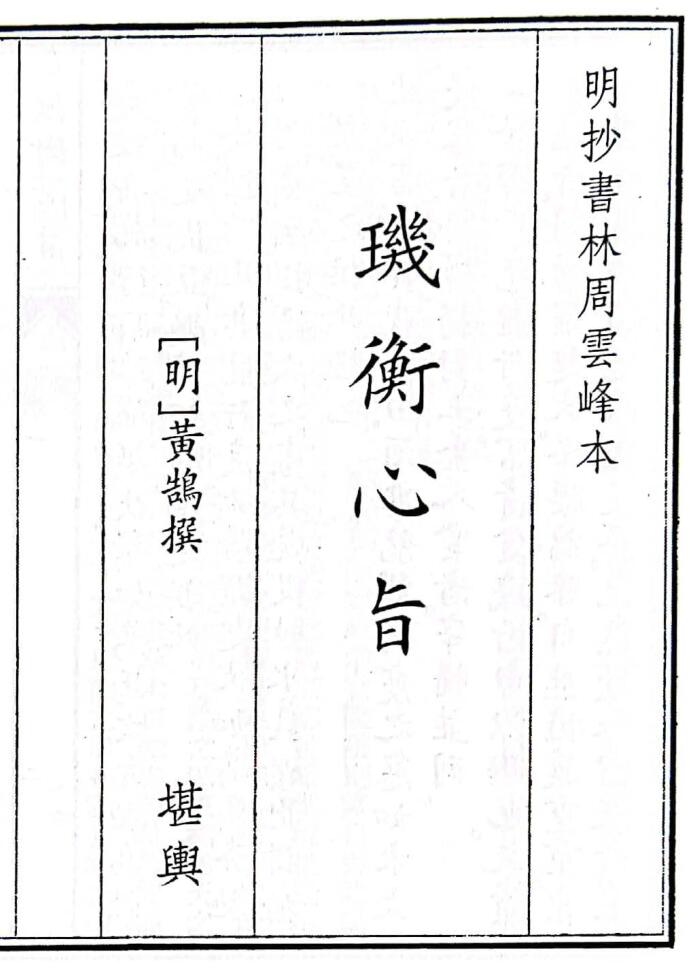 明抄書林周雲峰本
璣衡心旨
[明]黃鵠撰
堪輿